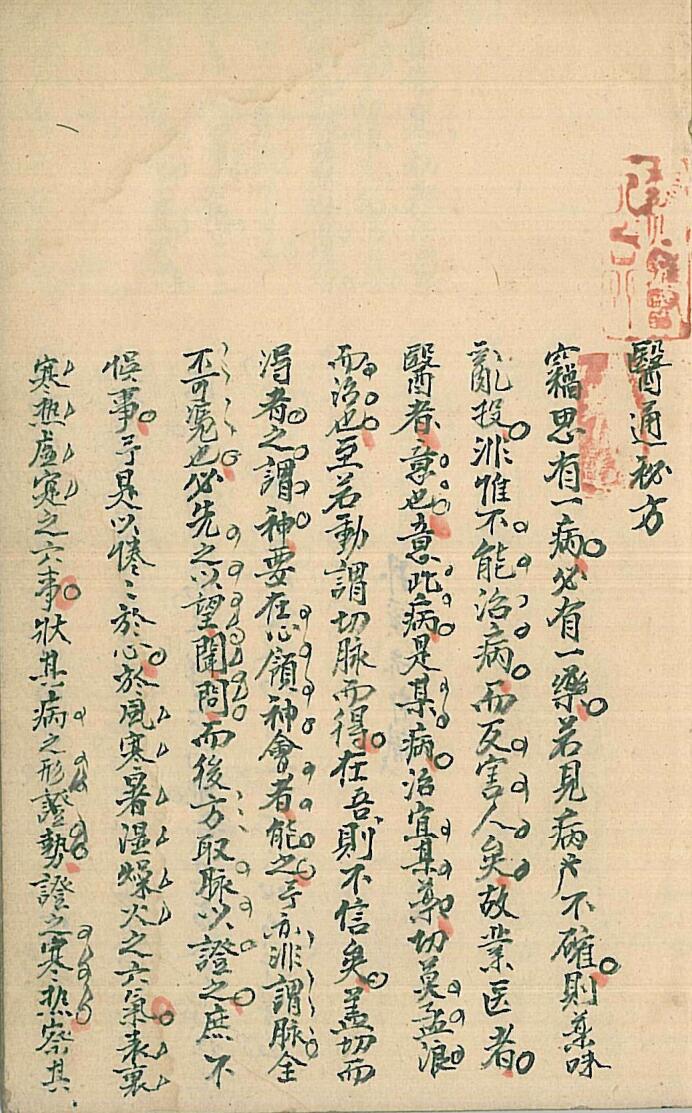 醫通秘方
竊思有一病必有一藥若見病户不確則葯味
亂投非惟不能治病而反害人矣故業医者
醫者意也意此病是某病治宜某葯切莫孟浪
而治也至若動謂切脉而得在吾則不信矣蓋切而
淂者之謂神要在心領神會者能之乎亦非謂脉全
不可凴也必先之以望聞問而後方取脉以證之庶不
悮事予是以惓〻於心於風寒暑湿燥火之六氣表裏
寒热虛寔之六事狀其病之形證勢證之寒热察其